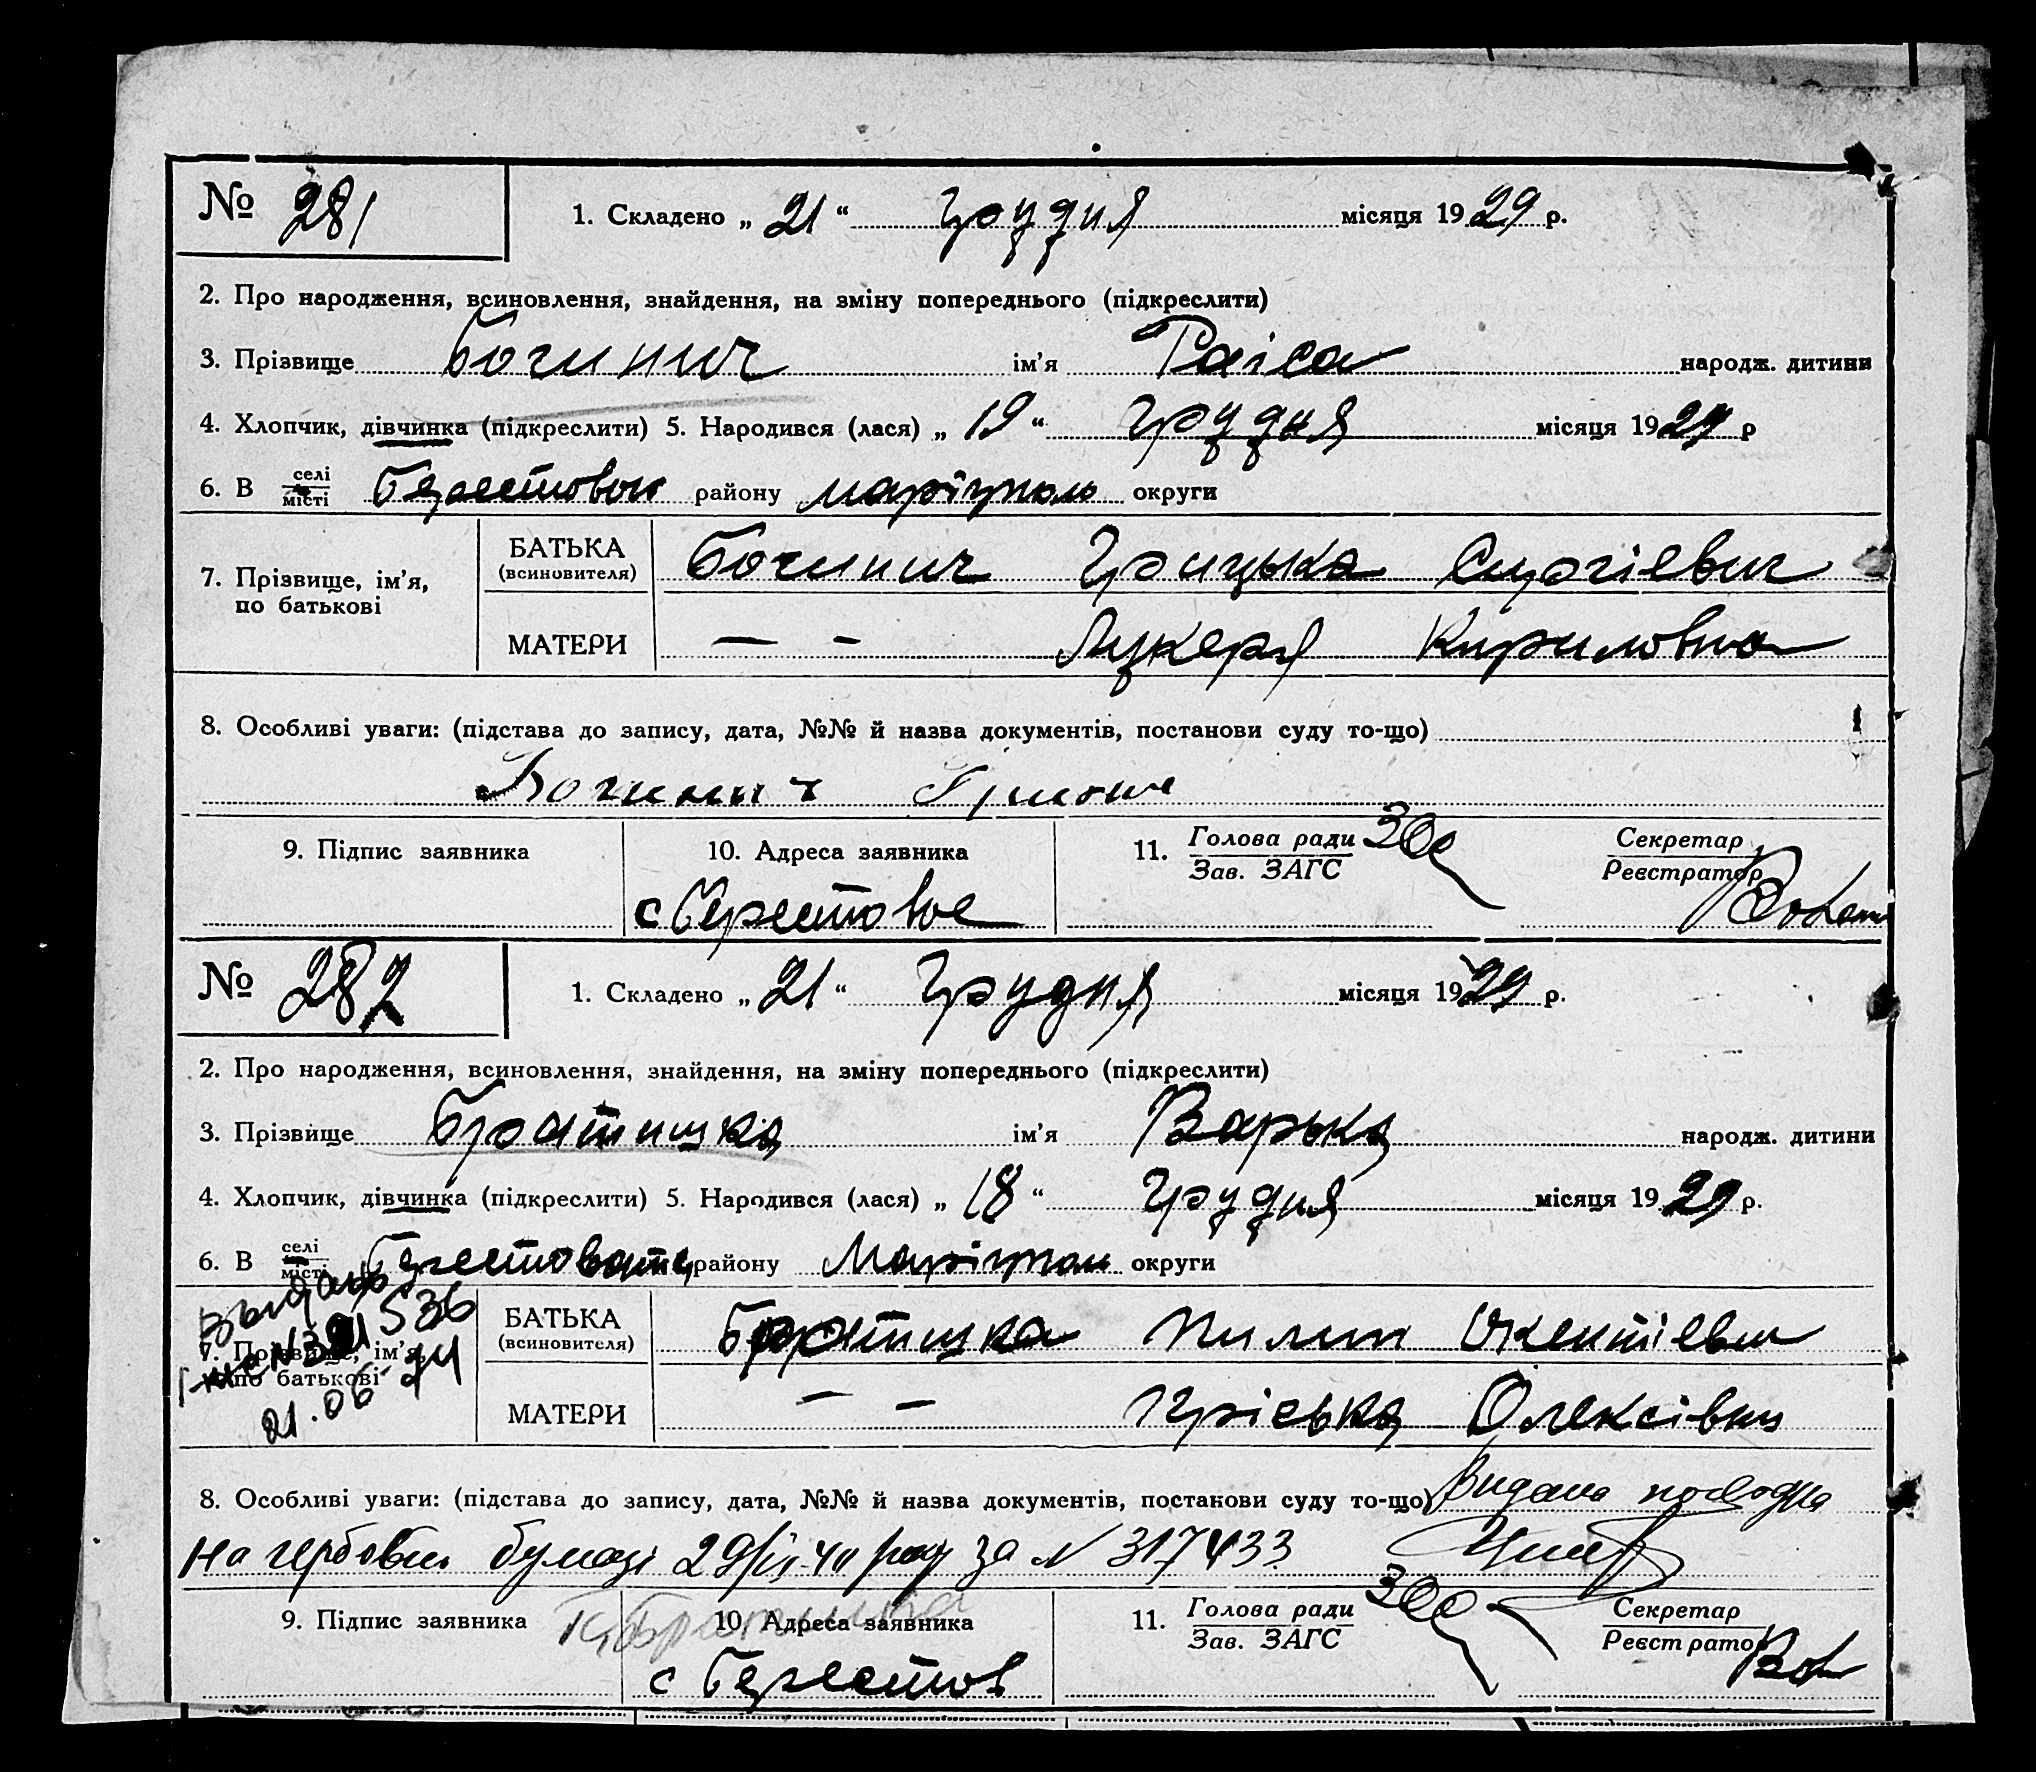 № 281
1. Складено „ 21 “ грудня місяця 1929 р.
2. Про народження, всиновлення, знайдення, на зміну попереднього (підкреслити)
3. Прізвище Богинич ім’я Раіса народж. дитини
4. Хлопчик, дівчинка (підкреслити) 5. Народився (лася) „ 19 “ грудня місяця 1929 р
6. В селі місті району Маріупол округи
7. Прізвище, ім’я, по батькові
БАТЬКА (всиновителя) Богинич Грицька Сиргіевич
МАТЕРИ — - Лукеря Кириловна
8. Особливі уваги: (підстава до запису, дата, №№ й назва документів, постанови суду то-що)
Богинич
9. Підпис заявника 10. Адреса заявника 11. Голова ради Зав. ЗАГС Секретар Реєстратор
с Берестовое
№ 282
1. Складено „ 21 “ грудня місяця 1929 р.
2. Про народження, всиновлення, знайдення, на зміну попереднього (підкреслити)
3. Прізвище Братишка ім’я Варька народж. дитини
4. Хлопчик, дівчинка (підкреслити) 5. Народився (лася) „ 18 “ грудня місяця 1929 р.
6. В селі місті району Маріупол округи
7. Прізвище, ім’я, по батькові
21.06
БАТЬКА (всиновителя) Братишка Пилип
МАТЕРИ — — Пріська Олексівна
8. Особливі уваги: (підстава до запису, дата, №№ й назва документів, постанови суду то-що) Видана
на гербовім бумазі за № 317433
9. Підпис заявника Братишка 10. Адреса заявника 11. Голова ради Зав. ЗАГС Секретар Реєстратор
с Берестов